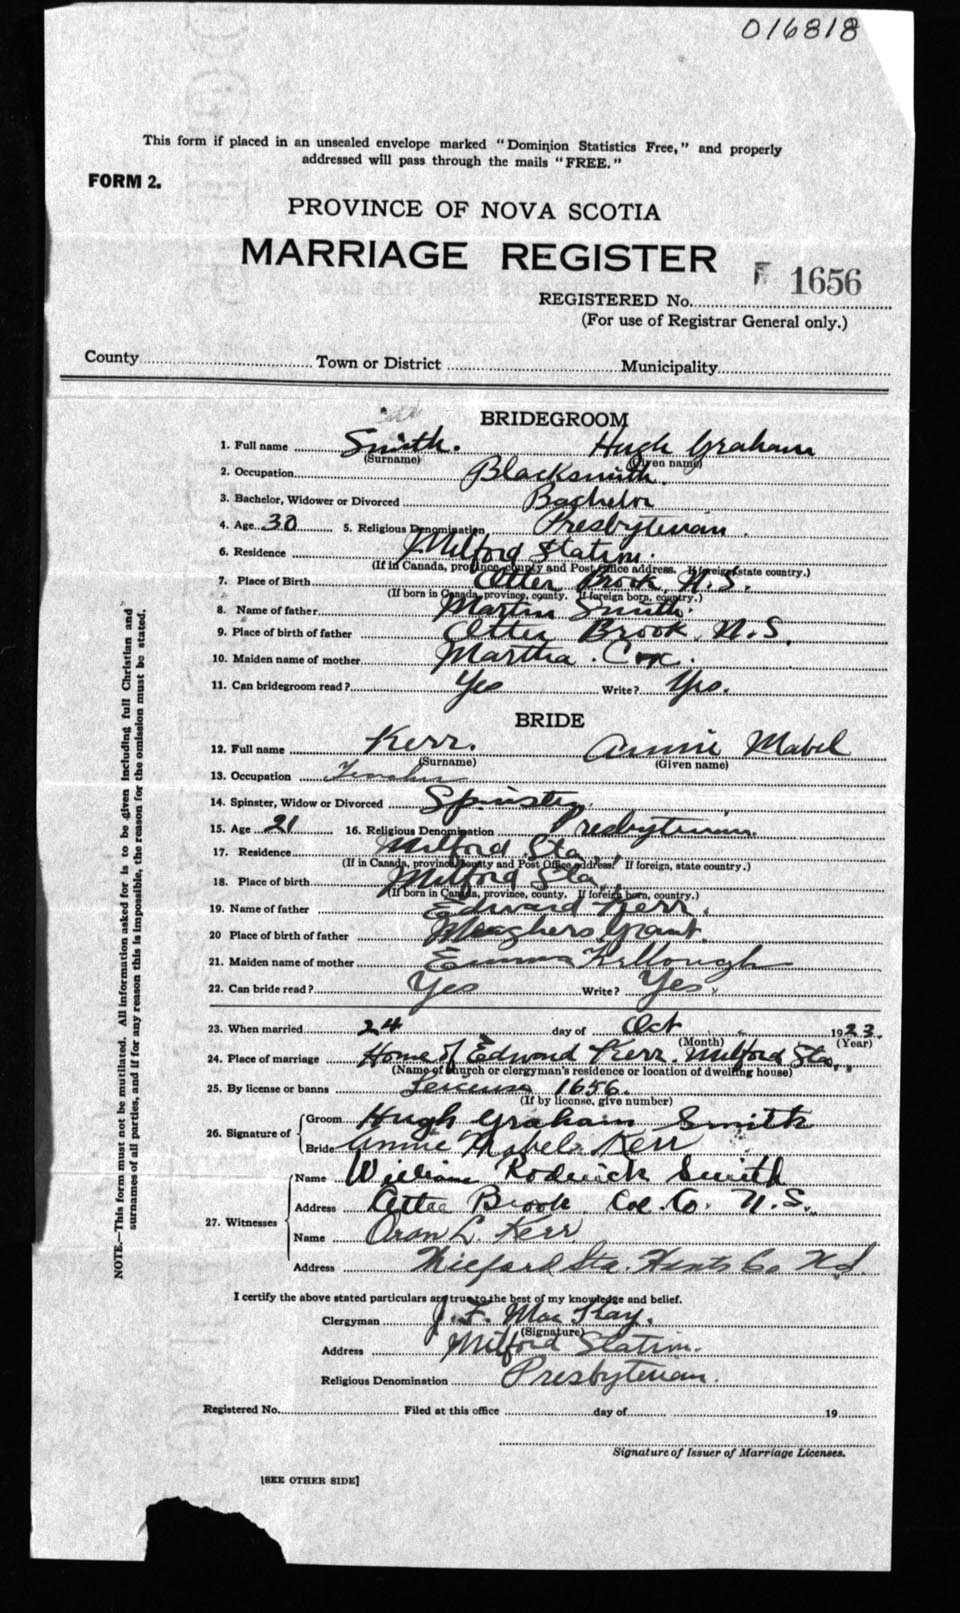 016818
This form if placed in an unsealed envelope marked "Dominion Statistics Free," and properly
addressed will pass through the mails "FREE."
FORM 2.
PROVINCE OF NOVA SCOTIA
MARRIAGE REGISTER
F 1656
REGISTERED No.
(For use of Registrar General only.)
County Town or District Municipality
BRIDEGROOM
1. Full name Smith. Hugh Graham
(Surname) (Given name)
2. Occupation Blacksmith.
3. Bachelor, Widower or Divorced Bachelor
4. Age 30 5. Religious Denomination Presbyterian.
6. Residence Milford Station.
(If in Canada, province, county and Post Office address. If foreign state country.)
7. Place of Birth Otter Brook, N.S.
(If born in Canada, province, county. If foreign born, country.)
8. Name of father Martin Smith.
9. Place of birth of father Otter Brook, N.S.
10. Maiden name of mother Martha. Cox.
11. Can bridegroom read? Yes Write? Yes.
BRIDE
12. Full name Kerr. Annie Mabel
(Surname) (Given name)
13. Occupation Teacher
14. Spinster, Widow or Divorced Spinster.
15. Age 21 16. Religious Denomination Presbyterian.
17. Residence Milford Sta.
(If in Canada, province, county and Post Office address. If foreign, state country.)
18. Place of birth Milford Sta
(If born in Canada, province, county. If foreign born, country.)
19. Name of father Edward Kerr.
20 Place of birth of father Meaghers Grant.
21. Maiden name of mother Emma Killough
22. Can bride read? Yes Write? Yes.
23. When married 24 day of Oct 1923
(Month) (Year)
24. Place of marriage Home of Edward Kerr. Milford Sta.
(Name of church or clergyman's residence or location of dwelling house)
25. By license or banns License 1656.
(If by license, give number)
26. Signature of Groom Hugh Graham Smith
Bride Annie Mabel Kerr
27. Witnesses Name William Roderick Smith
Address Otter Brook, Col. Co. N.S.
Name Oran L. Kerr
Address Milford Sta. Hants Co N.S.
I certify the above stated particulars are true to the best of my knowledge and belief.
Clergyman J. F. MacKay.
(Signature)
Address Milford Station.
Religious Denomination Presbyterian.
Registered No. Filed at this office day of 19
Signature of Issuer of Marriage Licenses.
[SEE OTHER SIDE]
NOTE.—This form must not be mutilated. All information asked for is to be given including full Christian and
surnames of all parties, and if for any reason this is impossible, the reason for the omission must be stated.